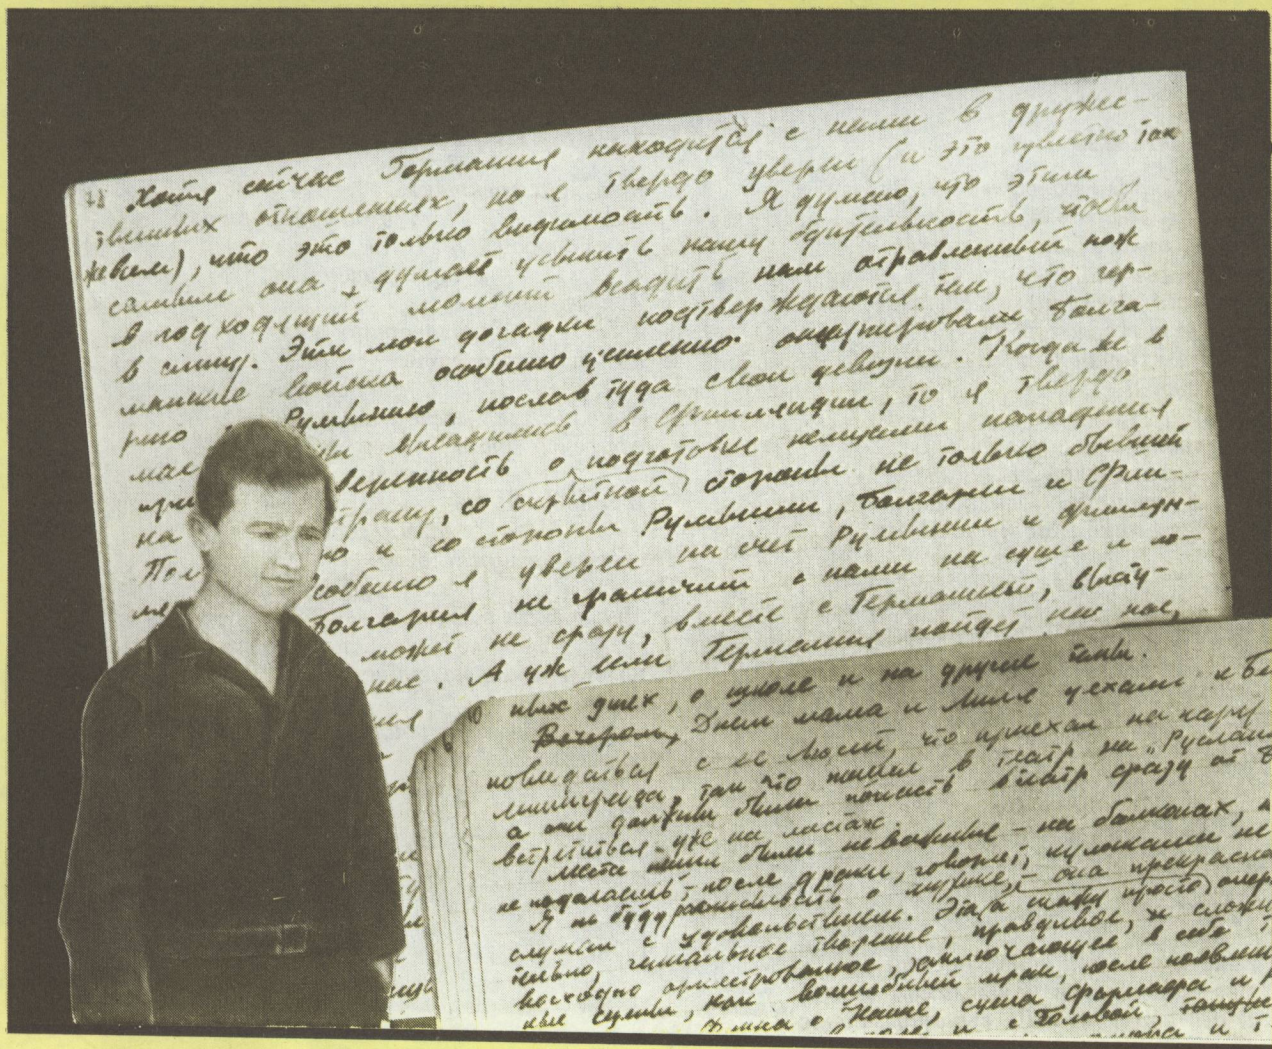 78 Хотя сейчас Германия находится с нами в дружес-
твенных отношениях, но я твердо уверен (и это известно так
же всем), что это только видимость. Я думаю, что этим
самым она думает усыпить нашу бдительность, чтобы
в подходящий момент всадить нам отравленный нож
в спину. Эти мои догадки подтверждаются тем, что гер-
манские войска особенно усиленно оккупировали Болга-
рию Румынию, послав туда свои дивизии. Когда же в
мае высадились в Финляндии, то я твердо
при веренность о подготовке немцами нападения
на трану, со скрытной стороны не только бывшей
Пол о и со стороны Румынии, Болгарии и Фин-
ля собенно я уверен на счет Румынии и Финлян-
Болгария не граничит с нами на суше и мо-
может не сразу, вместе с Германией, высту-
нас. А уж если Германия пойдет на нас,
ных днях, о школе и на другие темы.
Вечером Днем мама и Миля уехали к Б
повидаться с ее Люсей, что приехал на кару
Ленинграда, так что пошел в театр на „Руслана
а они должны были попасть в театр сразу от Б
встретиться уже на местах.
Места наши были неважные - на балконах, н
не поделаешь, - после драки, говорят, кулаками не
Я не буду расписывать о музыке, - она прекрасна
слушал с удовольствием. Эта, а скажу просто, опера
тельно, гениальное творение, правдивое, и сложн
восходно оркестрованное, заключающее в себе
ные сцены, как волшебный мрак, после появлени
Финна о Наине, сцена Фарлафа и
и с Головой, танцы